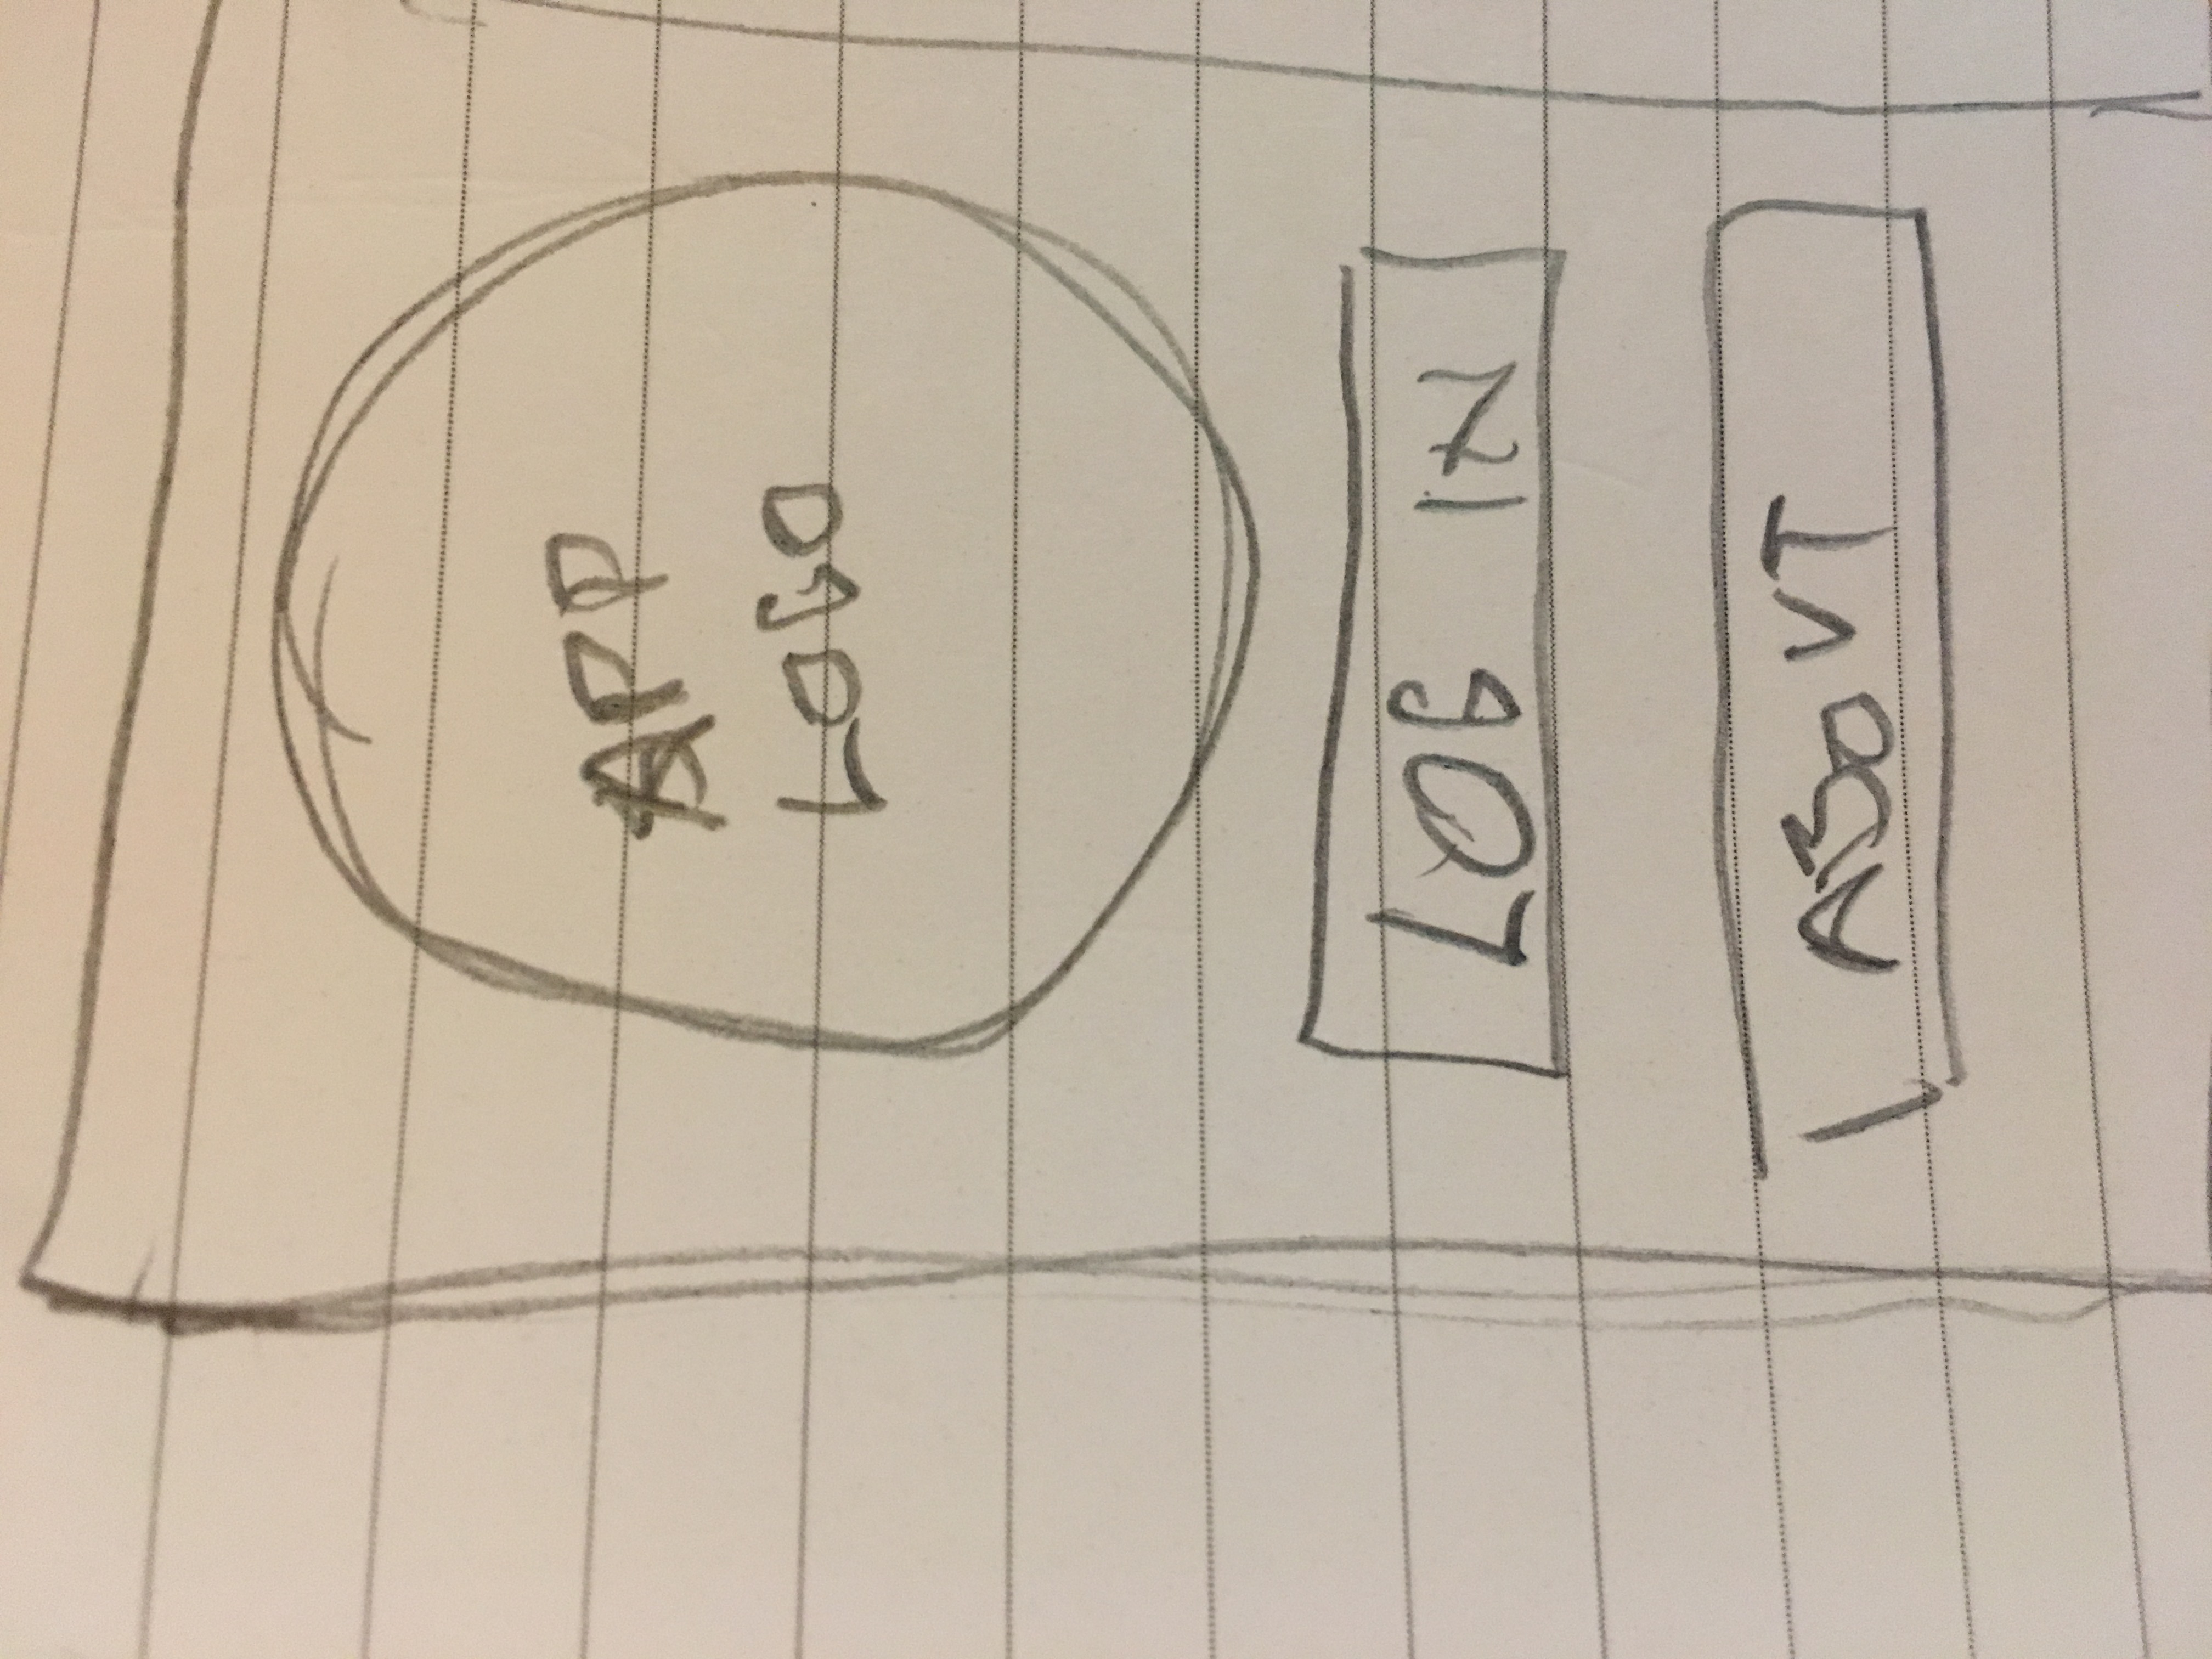 APP
LOGO
LOG IN
ABOUT